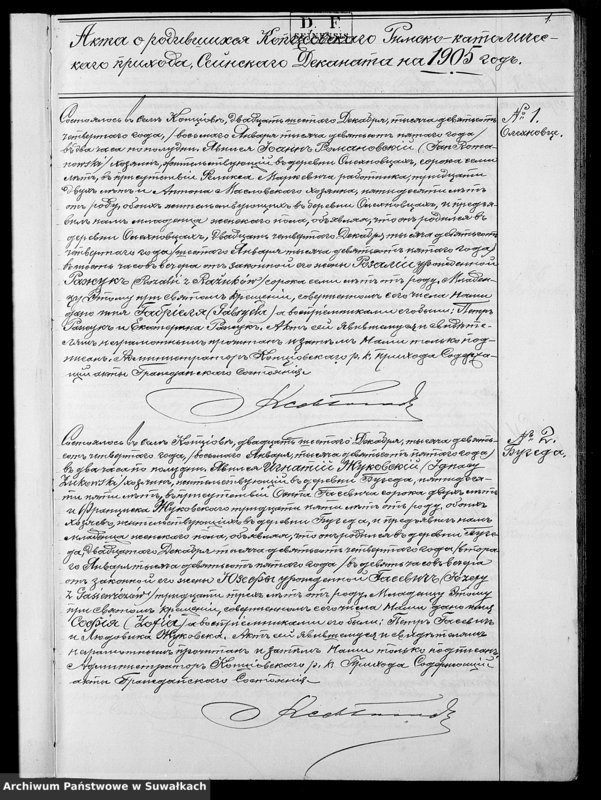 D. F.
1.
Акта о родившихся Копцёвского Римско-католичес-
каго прихода, Сейнскаго Деканата на 1905 годъ.
№ 1.
Олехновце.
Состоялось въ селѣ Копцёвѣ, двадцать шестаго Декабря, тысяча девятьсотъ
четвертаго года, /восьмаго Января тысяча девятьсотъ пятаго года/
въ два часа по полудни. Явился Іоаннъ Романовскій, (Jan Roma-
nowski) хозяинъ, жительствующій въ деревнѣ Олехновцахъ, сорока семи
лѣтъ, въ присутствіи Феликса Маркевича работника, тридцати
двухъ лѣтъ и Антона Масловскаго хозяина, пятидесяти лѣтъ
отъ роду, обоихъ жительствующихъ въ деревнѣ Олехновцахъ, и предъя-
вилъ намъ младенца женскаго пола, объявляя, что онъ родился въ
деревнѣ Олехновцахъ, двадцать четвертаго Декабря, тысяча девятьсотъ
четвертаго года /шестаго Января тысяча девятьсотъ пятаго года/
въ часовъ вечера отъ законной его жены Розаліи урожденной
Ранжукъ /сорока семи лѣтъ отъ роду. Младен-
цу этому при святомъ крещеніи, совершенномъ сего числа Нами
дано имя Габріеля (Gabryela) а воспріемниками его были: Петръ
Ранжукъ и Екатерина Ранжукъ. Актъ сей явившемуся и свидѣте-
лямъ неграмотнымъ прочитанъ и затѣмъ Нами только под-
писанъ. Администраторъ Копцёвскаго р. к. прихода Содержа-
щій акты Гражданскаго состоянія
№ 2.
Бугеда.
Состоялось въ селѣ Копцёвѣ, двадцать шестаго Декабря, тысяча девять-
сотъ четвертаго года, /восьмаго Января, тысяча девятьсотъ пятаго года/
въ два часа по полудни. Явился Игнатій Жуковскій /Ignacy
Żukowski/ хозяинъ, жительствующій въ деревнѣ Бугеда, пятидеся-
ти пяти лѣтъ, въ присутствіи Гасевича сорока двухъ лѣтъ
и Франциска Жуковскаго тридцати пяти лѣтъ отъ роду, обоихъ
хозяевъ, жительствующихъ въ деревнѣ Бугеда, и предъявилъ намъ
младенца женскаго пола, объявляя, что онъ родился въ деревнѣ Буге-
да, двадцатаго Декабря тысяча девятьсотъ четвертаго года /втора-
го Января тысяча девятьсотъ пятаго года/ въ девять часовъ вечера
отъ законной его жены Юзефы урожденной Гасевичъ /Józefy
z Gasewiczów/ тридцати трехъ лѣтъ отъ роду. Младенцу этому
при святомъ крещеніи, совершенномъ сего числа Нами дано имя
Софія (Zofia) а воспріемниками его были: Петръ Гасевичъ
и Людовика Жуковска. Актъ сей явившемуся и свидѣтелямъ
неграмотнымъ прочитанъ и затѣмъ Нами только подписанъ.
Администраторъ Копцёвскаго р. к. Прихода Содержащій
акты Гражданскаго Состоянія
Archiwum Państwowe w Suwałkach